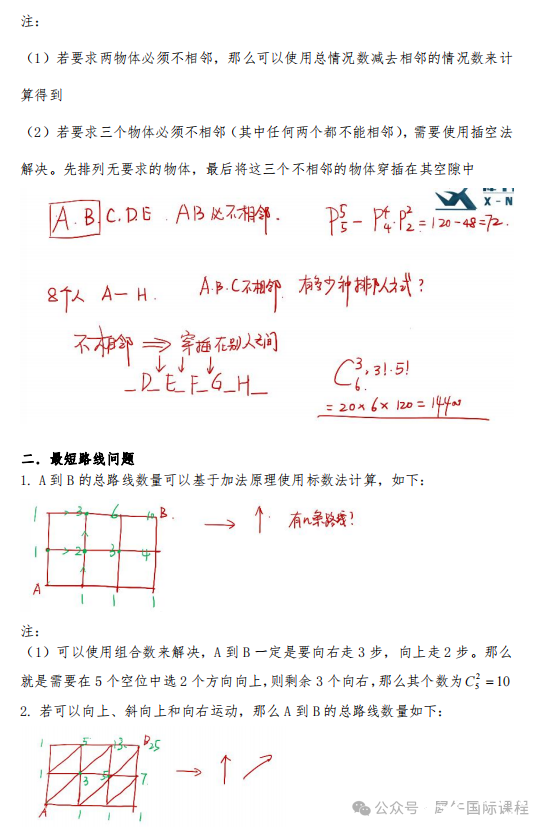 注：
（1）若要求两物体必须不相邻，那么可以使用总情况数减去相邻的情况数来计
算得到
（2）若要求三个物体必须不相邻（其中任何两个都不能相邻），需要使用插空法
解决。先排列无要求的物体，最后将这三个不相邻的物体穿插在其空隙中
X-N
A.B.C.D.E. AB必不相邻. P₅⁵ - P₄⁴·P₂² = 120-48=72.
8个人 A-H. A.B.C不相邻 有多少种排队方式？
不相邻 ⇒ 穿插在别人之间
_D_E_F_G_H_
C₆³·3!·5!
=20×6×120=14400
二．最短路线问题
1. A到B的总路线数量可以基于加法原理使用标数法计算，如下：
1 3 6 10 B.
→ ↑ 有几条路线？
1 2 3 4
A 1 1 1
注：
（1）可以使用组合数来解决，A到B一定是要向右走3步，向上走2步。那么
就是需要在5个空位中选2个方向向上，则剩余3个向右，那么其个数为C₅²=10
2. 若可以向上、斜向上和向右运动，那么A到B的总路线数量如下：
1 5 13 B 25
→ ↑ ↗
1 3 5 7
A 1 1 1
公众号 · 国际课程